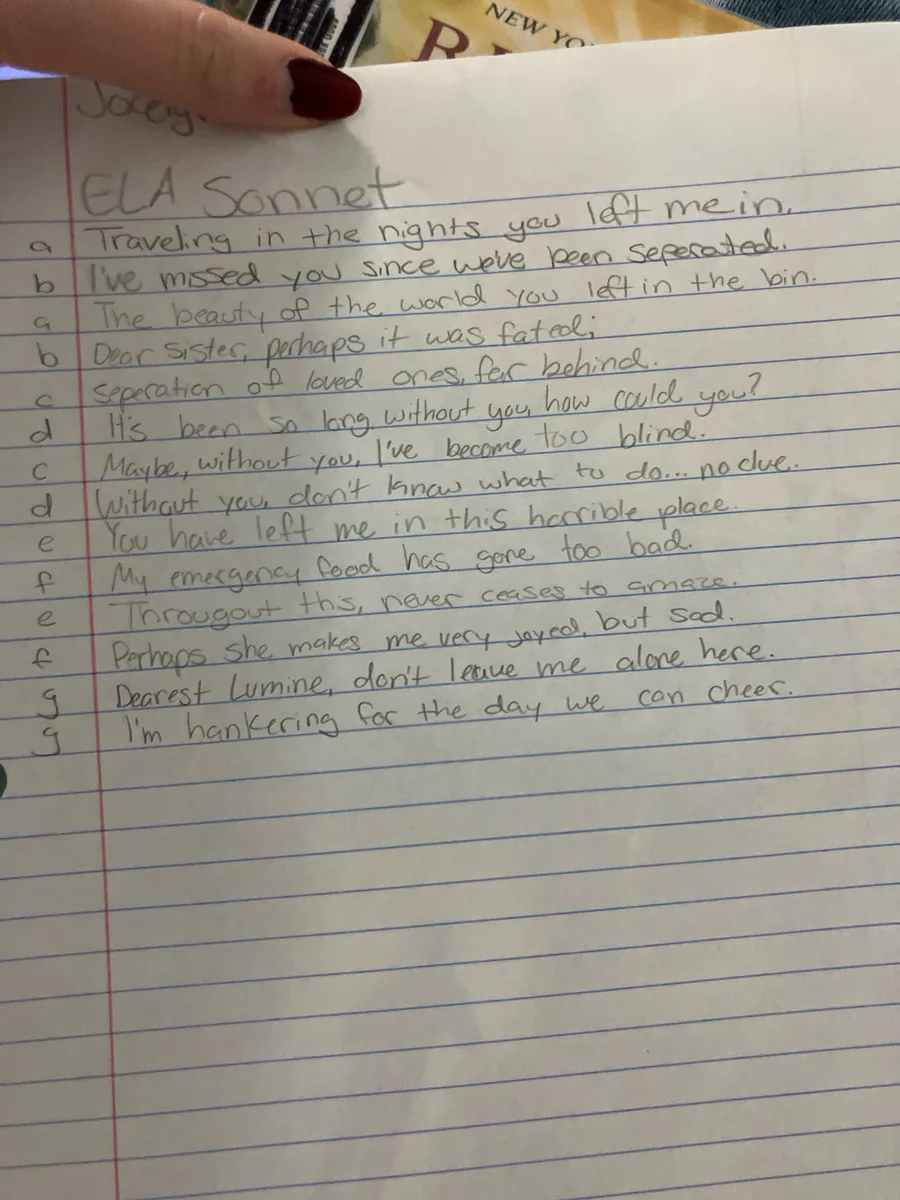 NEW YO
ELA Sonnet
a Traveling in the nights you left me in.
b I've missed you since we've been seperated.
a The beauty of the world you left in the bin.
b Dear sister, perhaps it was fated;
c seperation of loved ones, far behind.
d It's been so long without you, how could you?
c Maybe, without you, I've become too blind.
d Without you, don't know what to do... no clue.
e You have left me in this horrible place.
f My emergency food has gone too bad.
e Througout this, never ceases to amaze.
f Perhaps she makes me very joyed, but sad.
g Dearest Lumine, don't leave me alone here.
g I'm hankering for the day we can cheer.